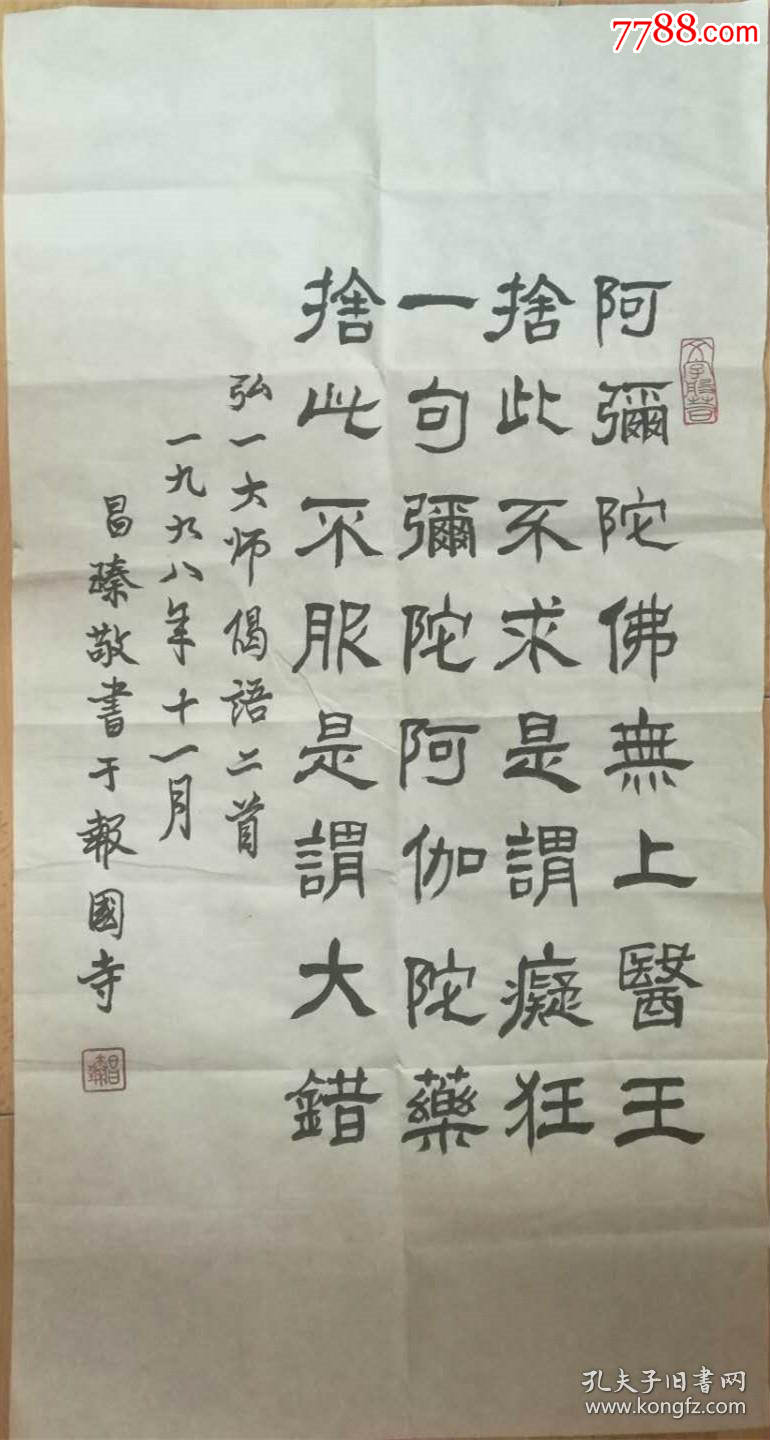 7788.com
阿彌陀佛無上醫王
捨此不求是謂癡狂
一句彌陀阿伽陀藥
捨此不服是謂大錯
弘一大师偈語二首
一九九八年十一月
昌臻敬書于報國寺
昌臻
孔夫子旧書网
www.kongfz.com